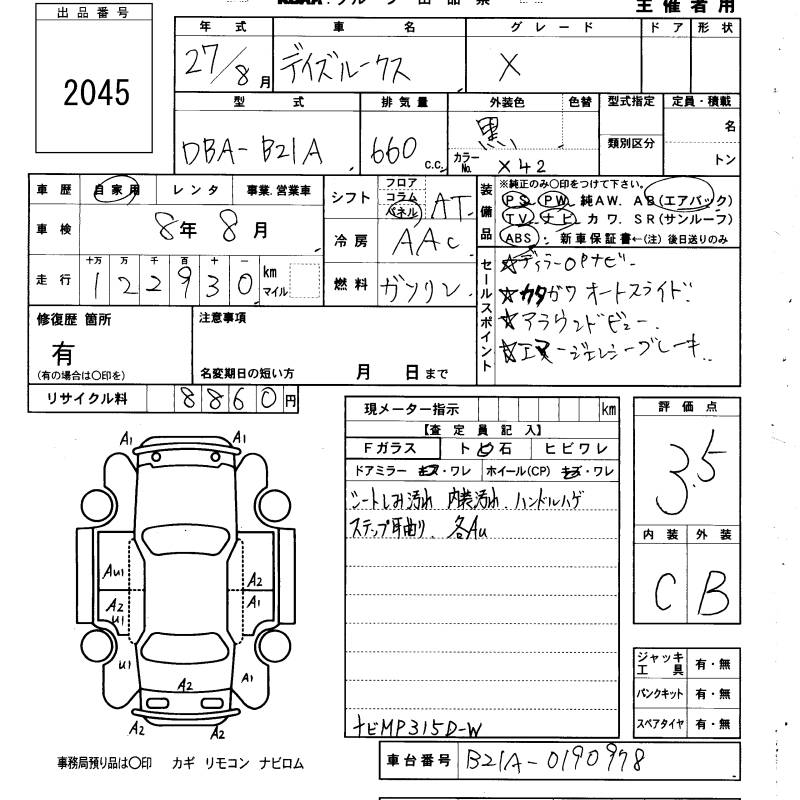 出品番号
2045
主催者用
年式 車名 グレード ドア 形状
27/8月 デイズルークス X
型式 排気量 外装色 色替 型式指定 定員・積載
DBA-B21A 660 c.c. 黒 類別区分 名
カラーNo. X42 トン
車歴 自家用 レンタ 事業.営業車
車検 8年8月
走行 十万 万 千 百 十 一 km マイル
122930
シフト フロア コラム パネル AT
冷房 AAC
燃料 ガソリン
装備品 ※純正のみ〇印をつけて下さい。
PS PW 純AW. AB(エアバック)
TV ナビ カワ. SR(サンルーフ)
ABS 新車保証書←(注) 後日送りのみ
セールスポイント
☆ディラーOPナビー
☆カタガワオートスライド
☆アラウンドビュー
☆エマージェンシーブレーキ
修復歴 箇所 注意事項
有
(有の場合は〇印を) 名変期日の短い方 月 日まで
リサイクル料 8860円
現メーター指示 km
【査定員記入】
Fガラス トビ石 ヒビワレ
ドアミラー キズ・ワレ ホイール(CP) キズ・ワレ
シートしみ汚れ 内装汚れ. ハンドルハゲ
ステップ耳曲り. 各AU
ナビMP315D-W
評価点
3.5
内装 外装
C B
ジャッキ工具 有・無
パンクキット 有・無
スペアタイヤ 有・無
A1 A1
AU1 A2
A2 A1
U1
U1 A1
A2
A2 A2
事務局預り品は〇印 カギ リモコン ナビロム
車台番号 B21A-0190978